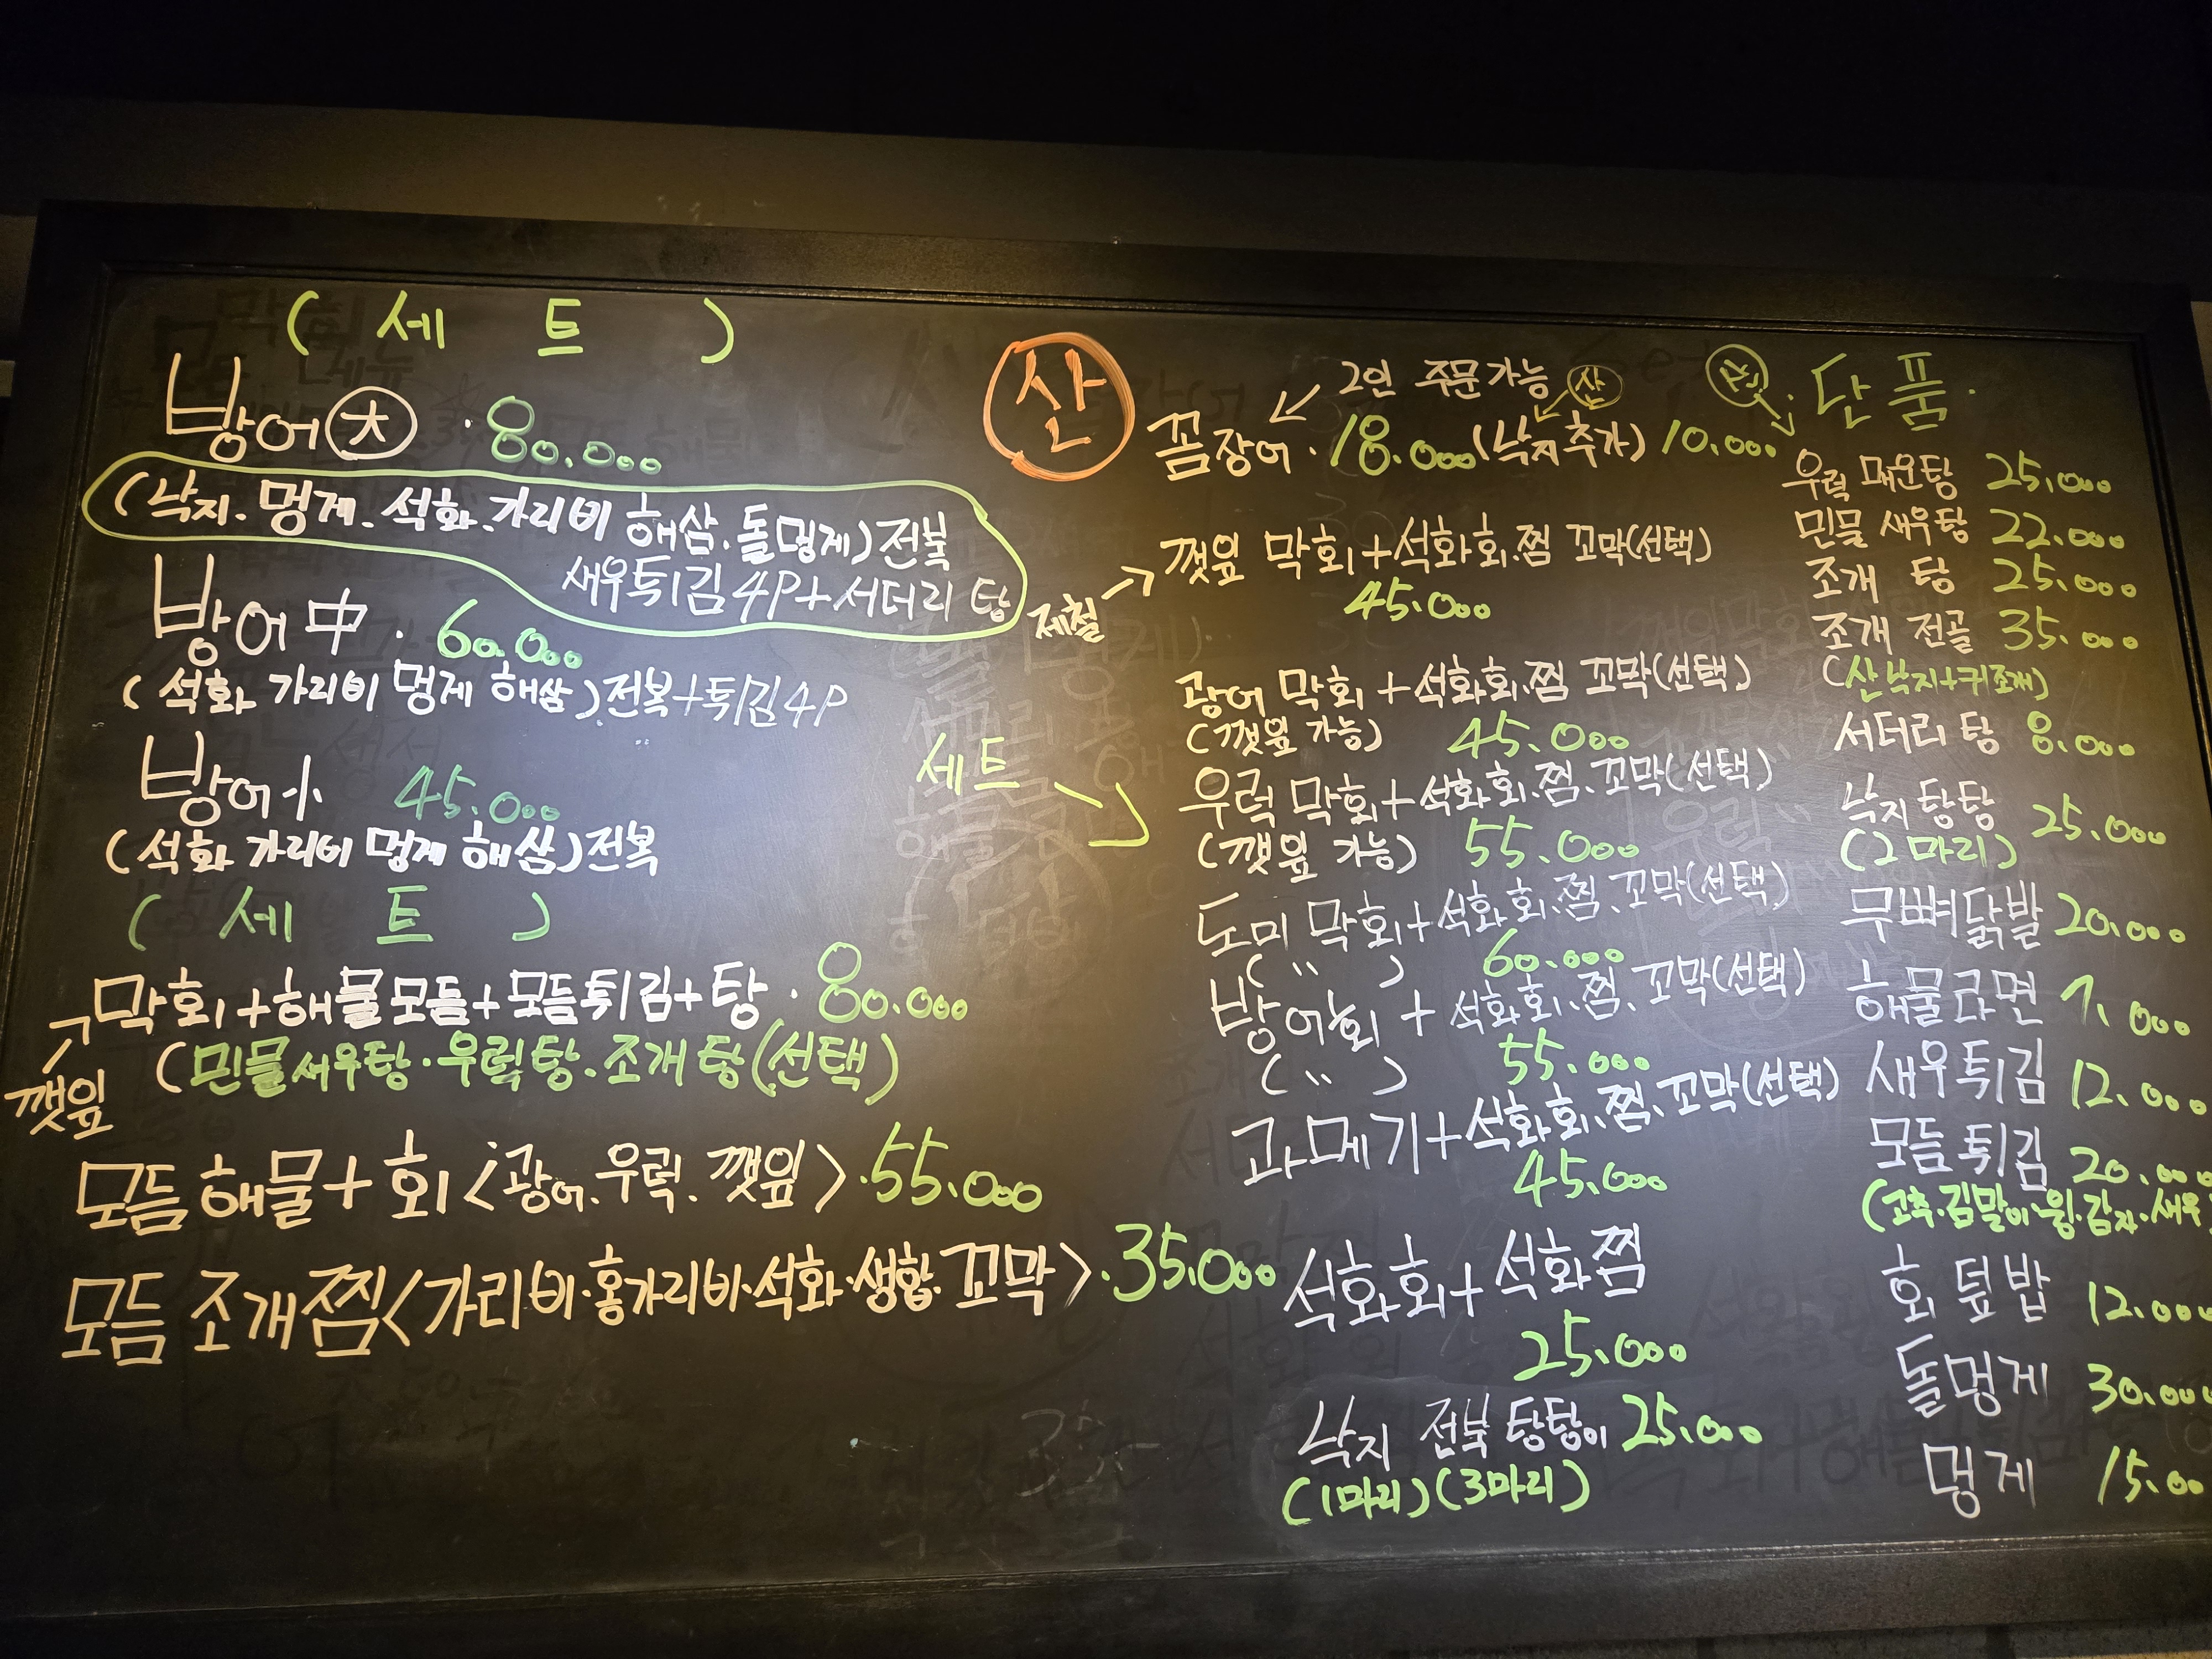 ( 세 트 )
방어 大 · 80.000
(낙지. 멍게. 석화. 가리비 해삼. 돌멍게) 전복
새우튀김 4P+서더리 탕
방어 中 · 60.000
(석화 가리비 멍게 해삼). 전복+튀김 4P
방어 小 45.000
(석화 가리비 멍게 해삼) 전복
( 세 트 )
막회+해물모듬+모듬튀김+탕 · 80.000
(민물새우탕 · 우럭탕 · 조개탕 (선택)
깻잎
모듬 해물+회 <광어. 우럭. 깻잎> · 55.000
모듬 조개찜 <가리비·홍가리비·석화·생합·꼬막> · 35.000
산
2인 주문가능 산
꼼장어 · 18.000 (낙지추가) 10.000
제철
깻잎 막회+석화회.찜 꼬막(선택)
45.000
세트
광어 막회+석화회.찜 꼬막(선택)
(깻잎 가능) 45.000
우럭 막회+석화회.찜.꼬막(선택)
(깻잎 가능) 55.000
도미 막회+석화회.찜.꼬막(선택)
( " ) 60.000
방어회+석화회.찜.꼬막(선택)
( " ) 55.000
과메기+석화회.찜.꼬막(선택)
45.000
석화회+석화찜
25.000
낙지 전복 탕탕이 25.000
(1마리) (3마리)
· 단품 ·
우럭 매운탕 25.000
민물 새우탕 22.000
조개 탕 25.000
조개 전골 35.000
(산낙지+키조개)
서더리 탕 8.000
낙지 탕탕 25.000
(2마리)
무뼈닭발 20.000
해물라면 7.000
새우튀김 12.000
모듬 튀김 20.000
(고추·김말이·윙·감자·새우)
회 덮밥 12.000
돌멍게 30.000
멍게 15.00